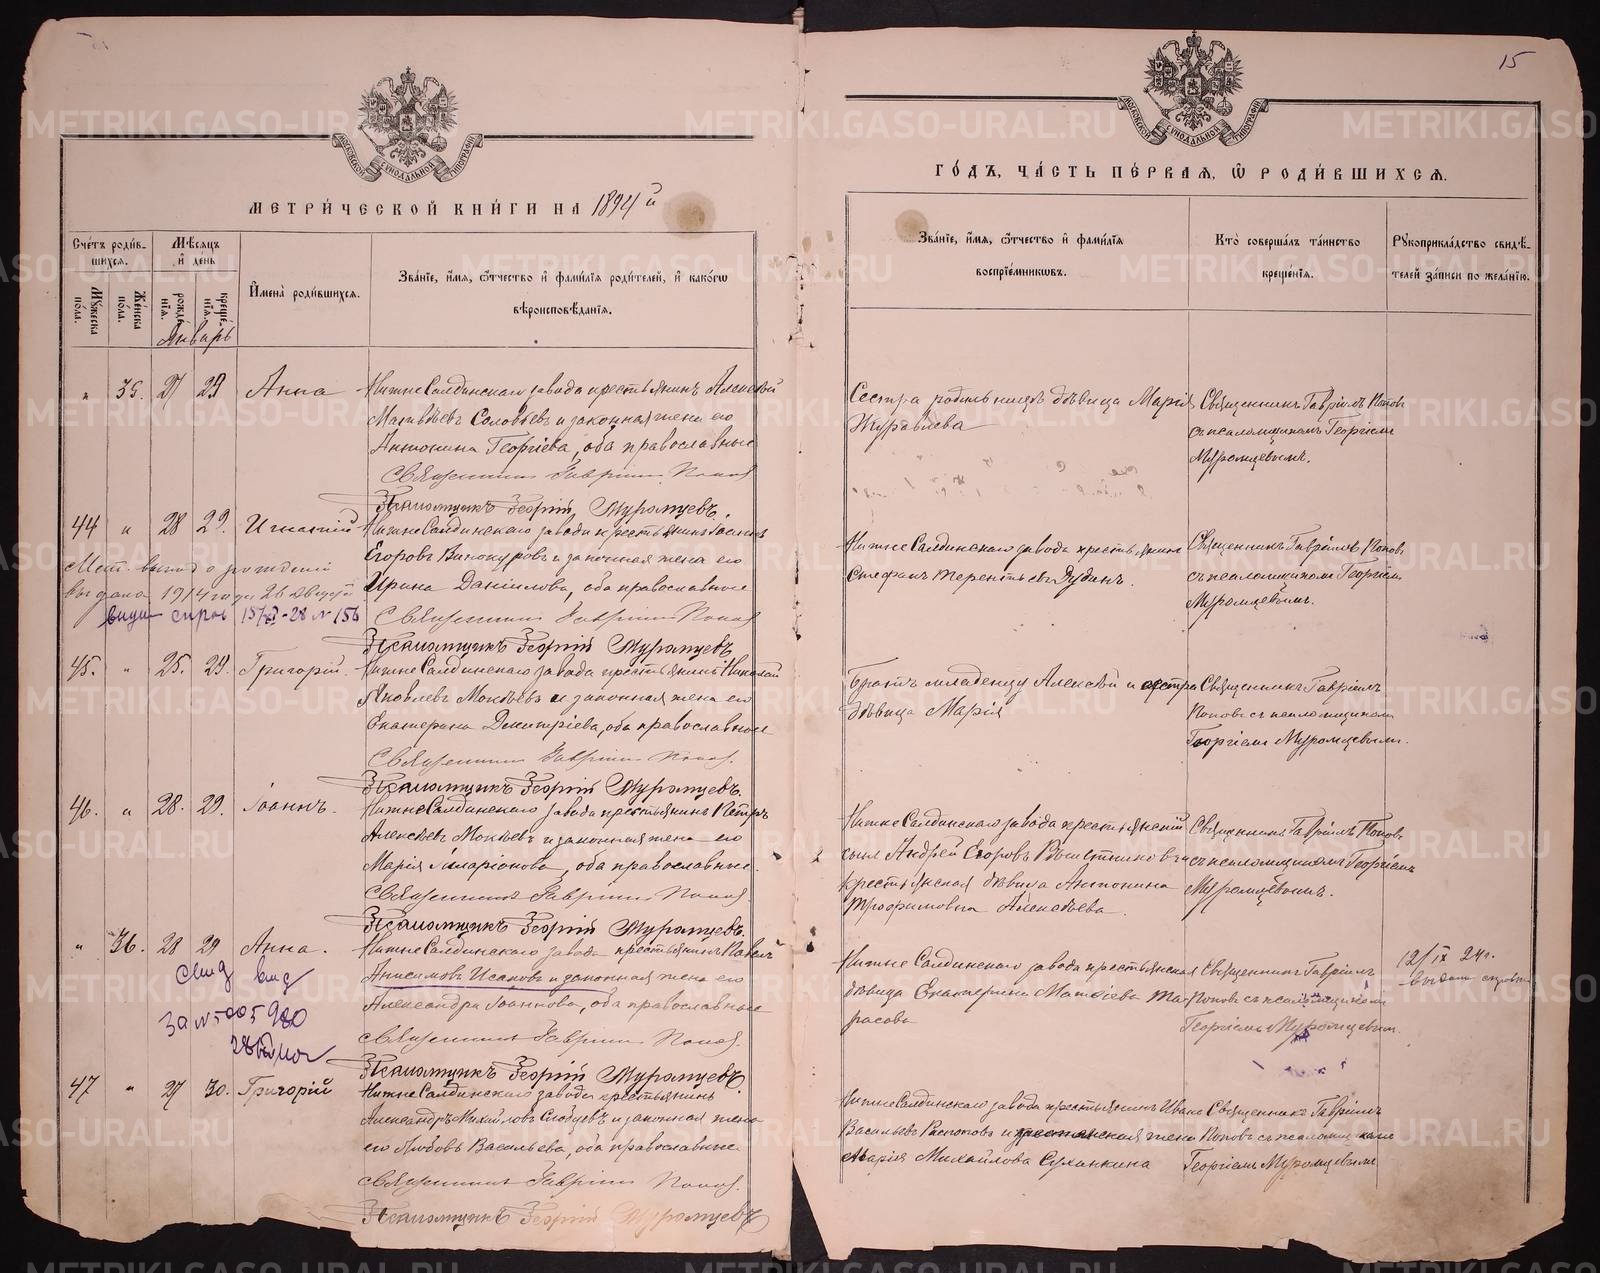 15
МЕТРИ́ЧЕСКОЙ КНИ́ГИ НА 1894й
ГО́ДЪ, ЧА́СТЬ ПЕ́РВАЯ, Ѡ РОДИ́ВШИХСЯ.
МОСКОВСКОЙ СѴНОДАЛЬНОЙ ТИПОГРАФІИ
МОСКОВСКОЙ СѴНОДАЛЬНОЙ ТИПОГРАФІИ
Счётъ роди́в-
шихся.
Мѣсяцъ
и день
Мꙋжеска по́ла.
Же́нска по́ла.
рожде́нія.
креще́нія.
Январь
Имена̀ роди́вшихся.
Зва́ніе, и́мя, ѻ҆́тчество и҆ фами́лія роди́телей, и҆ како́гѡ
вѣроисповѣ́данія.
Зва́ніе, и́мя, ѻ҆́тчество и҆ фами́лія
воспріе́мниковъ.
Кто̀ соверша́лъ та́инство
креще́нія.
Рꙋкоприкла́дство свидѣ́-
телей за́писи по жела́нію.
" 35. 27 29 Анна
Нижне Салдинскаго завода крестьянинъ Алексѣй
Матвѣевъ Соловьевъ и законная жена его
Антонина Георгіева, оба православные
Священникъ Гавріилъ Попов
Псаломщикъ Георгій Муромцевъ.
Сестра родильницы дѣвица Марія
Журавлева
Священникъ Гавріилъ Попов
съ псаломщикомъ Георгіем
Муромцевымъ.
44 " 28 29. Игнатій
Нижне Салдинскаго завода крестьянинъ Іоаннъ
Егоровъ Винокуровъ и законная жена его
Ирина Даніилова, оба православные
Священникъ Гавріилъ Попов
Псаломщикъ Георгій Муромцевъ
Мет. выпись о рожденіи
выдана 1914 года 26 Августа
выдан справ 15/XI-28 № 156
Нижне Салдинскаго завода крестьянинъ
Стефанъ Терентьевъ Зудинъ.
Священникъ Гавріилъ Попов
съ псаломщиком Георгіем
Муромцевымъ.
45. " 25. 29. Григорій.
Нижне Салдинскаго завода крестьянинъ Николай
Яковлевъ Мокѣевъ и законная жена его
Екатерина Димитріева, оба православные
Священникъ Гавріилъ Попов.
Псаломщикъ Георгій Муромцевъ.
Братъ младенцу Алексѣй и сестра
дѣвица Марія
Священникъ Гавріилъ
Поповъ съ псаломщиком
Георгіем Муромцевым.
46. " 28. 29. Іоаннъ.
Нижне Салдинскаго завода крестьянинъ Петръ
Алексѣевъ Мокѣевъ и законная жена его
Марія Иларіонова, оба православные.
Священникъ Гавріилъ Попов.
Псаломщикъ Георгій Муромцевъ.
Нижне Салдинскаго завода крестьянскій
сынъ Андрей Егоровъ и
крестьянская дѣвица Антонина
Трофимовна Алексѣева.
Священникъ Гавріилъ Попов
съ псаломщикомъ Георгіемъ
Муромцевымъ.
" 36. 28 29 Анна.
Нижне Салдинскаго завода крестьянинъ Павелъ
Анисимовъ Исаковъ и законная жена его
Александра Іоаннова, оба православные
Священникъ Гавріилъ Попов.
Псаломщикъ Георгій Муромцевъ
Свид выд
за № 005980
Нижне Салдинскаго завода крестьянская
дѣвица Екатерина Матвіева Та-
расова
Священникъ Гавріилъ
Поповъ съ псаломщиком
Георгіемъ Муромцевым.
12/IX 24г.
выдан справка
47 " 27 30. Григорій
Нижне Салдинскаго завода крестьянинъ
Александръ Михайловъ Слобцевъ и законная жена
его Любовь Васильева, оба православные
Священникъ Гавріилъ Попов.
Псаломщикъ Георгій Муромцевъ
Нижне Салдинскаго завода крестьянинъ Иванъ
Васильевъ Распоповъ и крестьянская жена
Марія Михайлова Суханкина
Священникъ Гавріилъ
Поповъ съ псаломщиком
Георгіемъ Муромцевымъ
METRIKI.GASO-URAL.RU